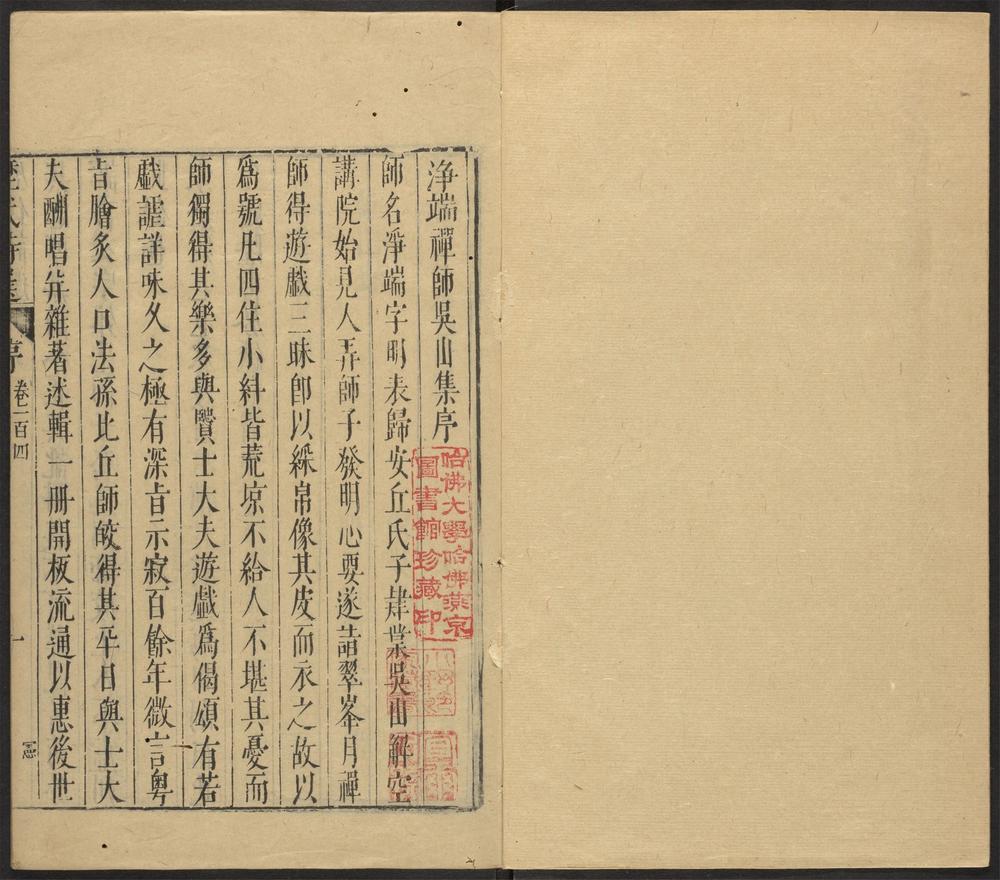 淨端禪師吳山集序
師名淨端字明表歸安丘氏子肄業吳山解空
講院始見人弄師子發明心要遂詣翠峯月禪
師得遊戲三昧卽以綵帛像其皮而衣之故以
爲號凡四住小紏皆荒凉不給人不堪其憂而
師獨得其樂多與贒士大夫遊戲爲偈頌有若
戲謔詳味久之極有深旨示寂百餘年微言粤
旨膾炙人口法孫比丘師皎得其平日與士大
夫酬唱并雜著述輯一冊開板流通以惠後世
序 卷一百四 一
哈佛大學哈佛燕京
圖書館珍藏印